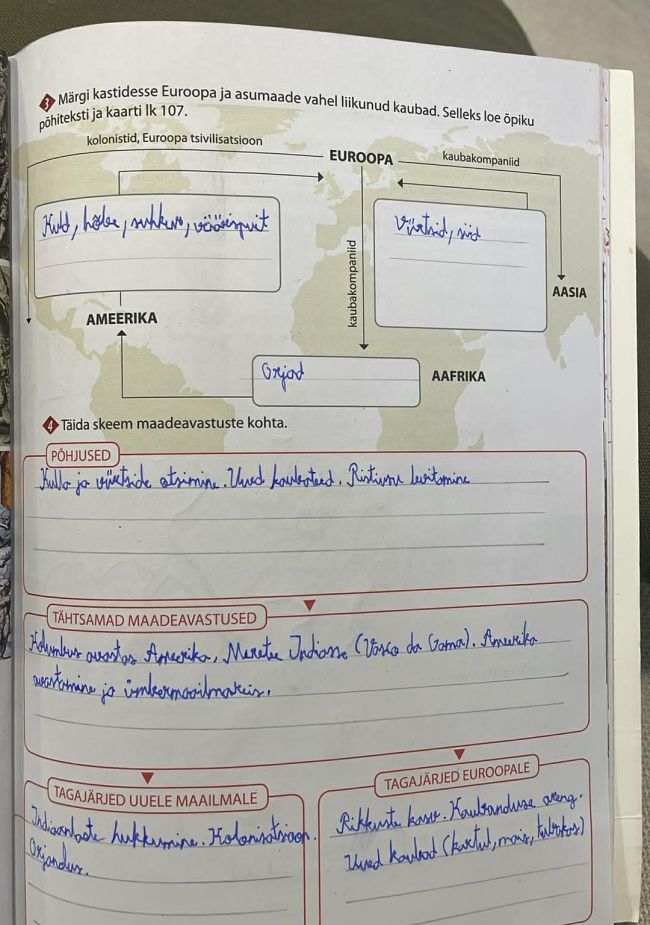 3 Märgi kastidesse Euroopa ja asumaade vahel liikunud kaubad. Selleks loe õpiku
põhiteksti ja kaarti lk 107.
kolonistid, Euroopa tsivilisatsioon
EUROOPA
kaubakompaniid
Kuld, hõbe, suhkur, väärispuit
Vürtsid, siid
kaubakompaniid
AASIA
AMEERIKA
Orjad
AAFRIKA
4 Täida skeem maadeavastuste kohta.
PÕHJUSED
Kulla ja vürtside otsimine. Uued kaubateed. Ristiusu levitamine
TÄHTSAMAD MAADEAVASTUSED
Kolumbus avastas Ameerika, Meretee Indiasse (Vasco da Gama). Ameerika
avastamine ja ümbermaailmareis.
TAGAJÄRJED UUELE MAAILMALE
Indiaanlaste hukkumine. Kolonisatsioon.
Orjandus.
TAGAJÄRJED EUROOPALE
Rikkuste kasv. Kaubanduse areng.
Uued kaubad (kartul, mais, tubakas)